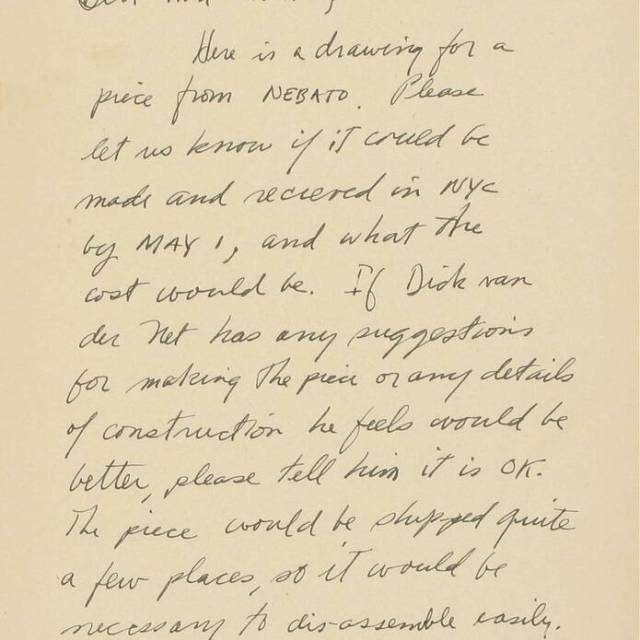 Here is a drawing for a
piece from NEBATO. Please
let us know if it could be
made and recieved in NYC
by MAY 1, and what the
cost would be. If Dick van
der Net has any suggestions
for making the piece or any details
of construction he feels would be
better, please tell him it is OK.
The piece would be shipped quite
a few places, so it would be
necessary to dis-assemble easily.